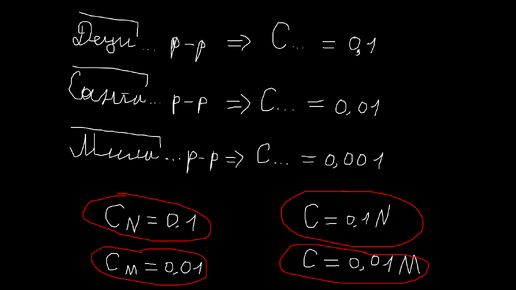 Деци... р-р => С... = 0,1
Санти... р-р => С... = 0,01
Милли... р-р => С... = 0,001
CN = 0.1 C = 0,1 N
CM = 0,01 C = 0,01 M